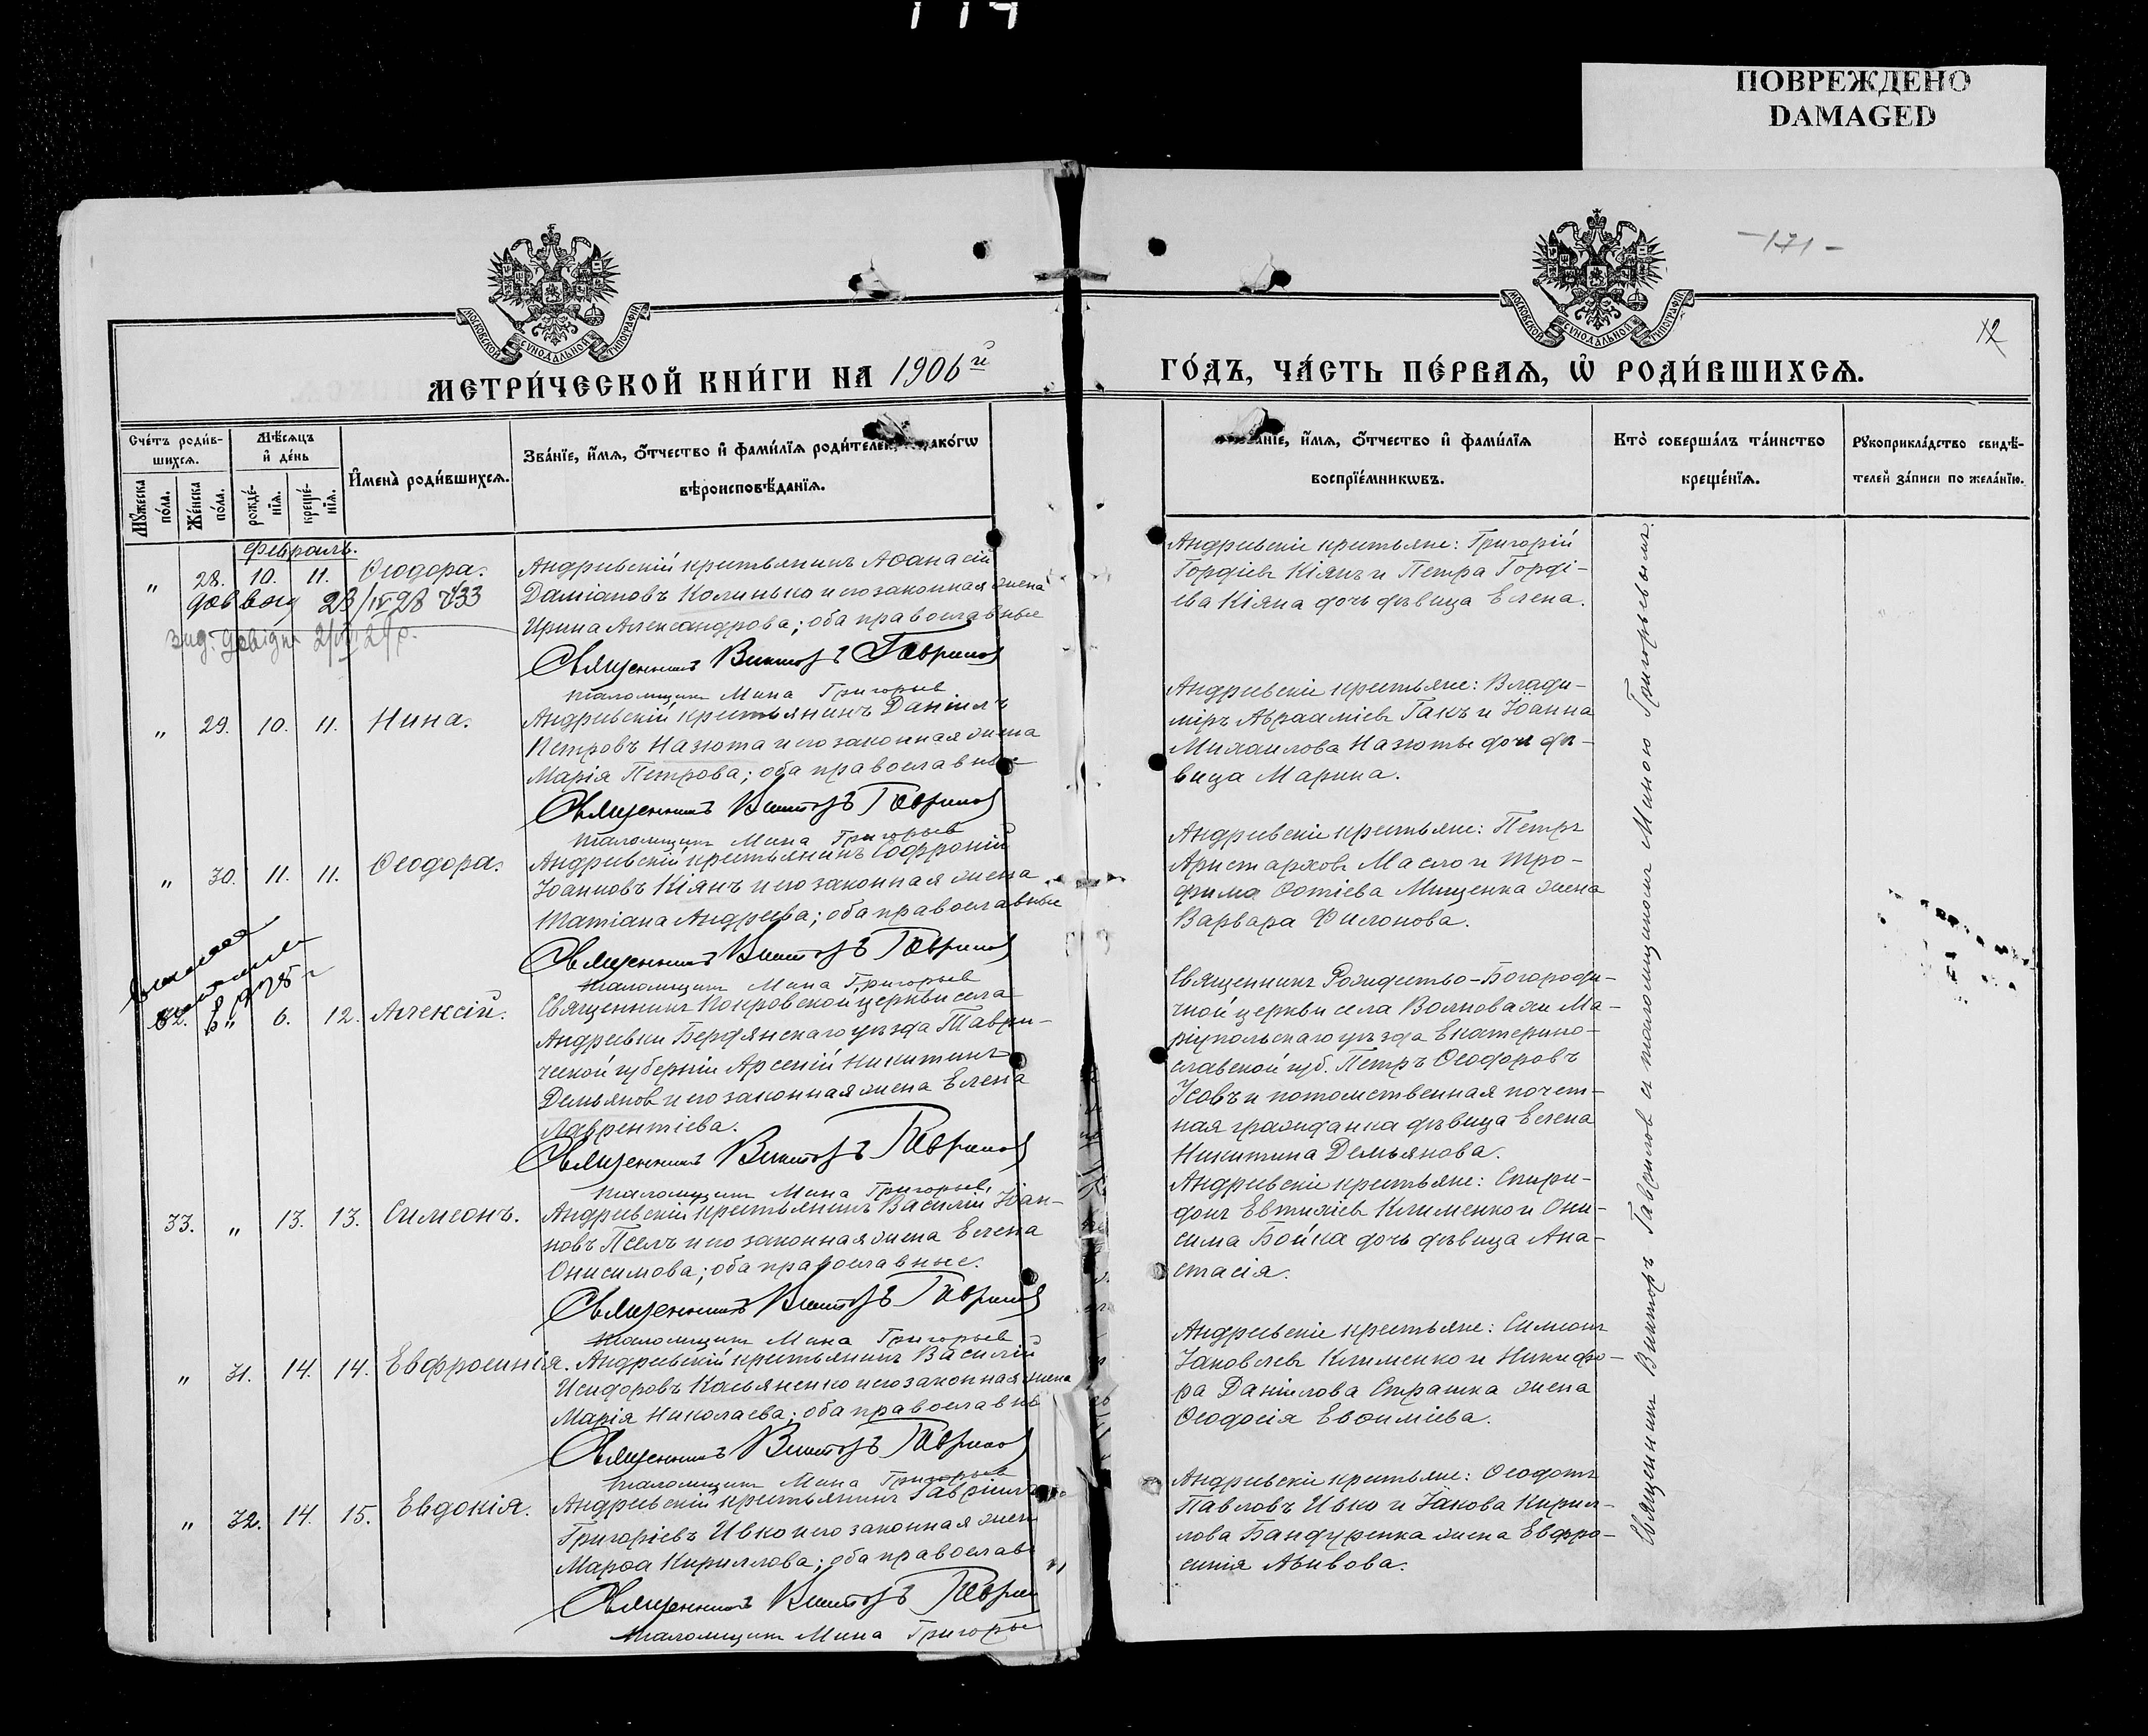 ПОВРЕЖДЕНО
DAMAGED
-171-
12
МОСКОВСКОЙ СѴНОДАЛЬНОЙ ТИПОГРАФІИ
МОСКОВСКОЙ СѴНОДАЛЬНОЙ ТИПОГРАФІИ
МЕТРИ́ЧЕСКОЙ КНИ́ГИ НА 1906й
ГО́ДЪ, ЧА́СТЬ ПЕ́РВАѦ, Ѡ҆ РОДИ́ВШИХСѦ.
Сче́тъ роди́в-
шихсѧ.
Мѣ́сѧцъ
и҆ де́нь
И҆мена̀ роди́вшихсѧ.
Зва́нїе, и҆́мѧ, ѻ҆́тчество и҆ фами́лїѧ роди́телей, како́гѡ
вѣроисповѣ́данїѧ.
Мꙋ́жеска по́ла.
Же́нска по́ла.
рожде́-нїѧ.
креще́-нїѧ.
и҆́мѧ, ѻ҆́тчество и҆ фами́лїѧ
воспрїе́мникѡвъ.
Кто̀ соверша́лъ та́инство
креще́нїѧ.
Рꙋкоприкла́дство свидѣ́-
телей за́писи по жела́нїю.
Февраль.
" 28. 10. 11. Ѳеодора.
Андреевскій крестьянинъ Аѳанасій
Даміановъ Калинько и его законная жена
Ирина Александрова; оба православные
Священникъ Викторъ Гаврилов
Псаломщикъ Мина Григорьев
Андреевскіе крестьяне: Григорій
Гордіевъ Кіянъ и Петра Горді-
ева Кіяна дочь дѣвица Елена.
" 29. 10. 11. Нина.
Андреевскій крестьянинъ Даніилъ
Петровъ Назюта и его законная жена
Марія Петрова; оба православные
Священникъ Викторъ Гаврилов
Псаломщикъ Мина Григорьев
Андреевскіе крестьяне: Влади-
міръ Авраамїевъ Гакъ и Іоанна
Михаилова Назюты дочь дѣ-
вица Марина.
" 30. 11. 11. Ѳеодора.
Андреевскій крестьянинъ Софроній
Іоанновъ Кіянъ и его законная жена
Татіана Андреева; оба православные
Священникъ Викторъ Гаврилов
Псаломщикъ Мина Григорьев
Андреевскіе крестьяне: Петръ
Аристарховъ Масло и Тро-
фима Фотіева Мищенка жена
Варвара Филонова.
32. " 6. 12. Алексій.
Священникъ Покровской церкви села
Андреевки Бердянскаго уѣзда Таври-
ческой губерніи Арсеній Никитинъ
Демьянов и его законная жена Елена
Лаврентіева.
Священникъ Викторъ Гаврилов
Псаломщикъ Мина Григорьев
Священникъ Рождество-Богороди-
чной церкви села Волновахи Ма-
ріупольскаго уѣзда Екатерино-
славской губ. Петръ Ѳеодоровъ
Усовъ и потомственная почет-
ная гражданка дѣвица Елена
Никитина Демьянова.
33. " 13. 13. Симеонъ.
Андреевскій крестьянинъ Василій Іоан-
новъ Пселъ и его законная жена Елена
Онисимова; оба православные.
Священникъ Викторъ Гаврилов
Псаломщикъ Мина Григорьев
Андреевскіе крестьяне: Спири-
донъ Евтихіевъ Клименко и Они-
сима Бойка дочь дѣвица Ана-
стасія.
" 31. 14. 14. Евфросинія.
Андреевскій крестьянинъ Василій
Исидоровъ Касьяненко и его законная жена
Марія Николаева; оба православн
Священникъ Викторъ Гаврилов
Псаломщикъ Мина Григорьев
Андреевскіе крестьяне: Симеонъ
Іаковлевъ Клименко и Никифо-
ра Даніилова Страшка жена
Ѳеодосія Евѳиміева.
" 32. 14. 15. Евдокія.
Андреевскій крестьянинъ Гавріилъ
Григоріевъ Ивко и его законная жен
Марѳа Кириллова; оба православ
Священникъ Викторъ Гаврил
Псаломщикъ Мина Григорье
Андреевскіе крестьяне: Ѳеодотъ
Павловъ Ивко и Іакова Кирил-
лова Бандуренка жена Евфро-
синія Авивова.
Священникъ Викторъ Гаврилов съ псаломщикомъ Миною Григорьевымъ.